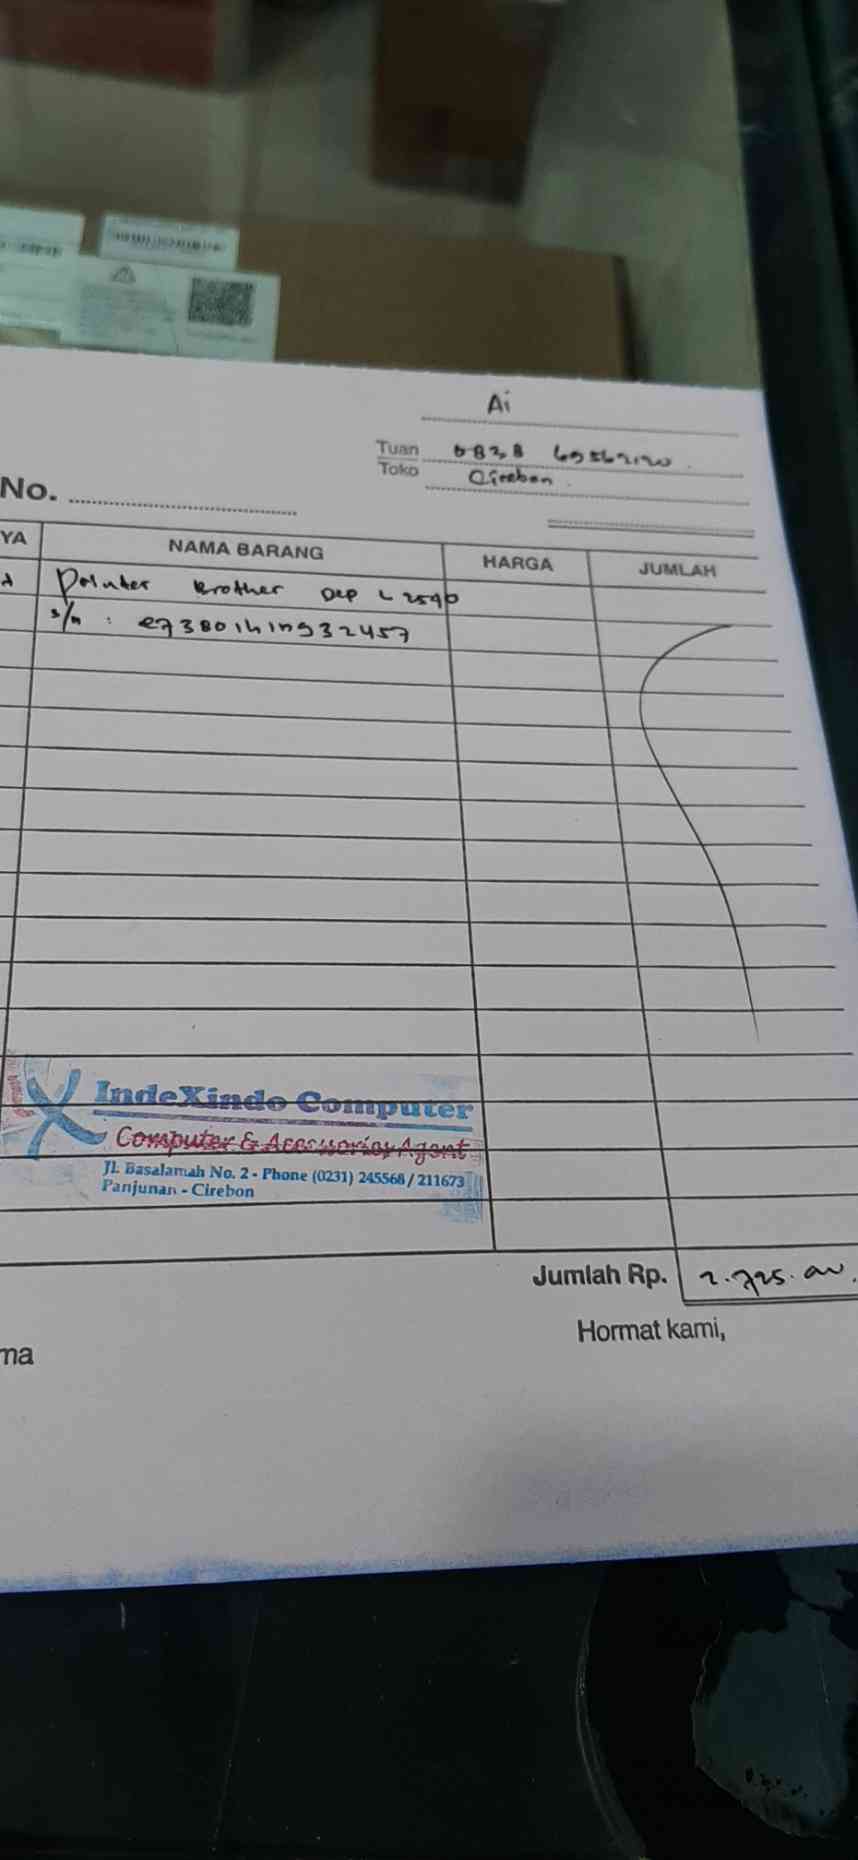 Ai
Tuan 0838 69562120
Toko Cirebon
No.
YA NAMA BARANG HARGA JUMLAH
Printer Brother DCP L 2540
s/n : E73801h1n932457
IndeXindo Computer
Computer & Acessories Agent
Jl. Basalamah No. 2 - Phone (0231) 245568 / 211673
Panjunan - Cirebon
Jumlah Rp. 2.725.000
Hormat kami,
ma